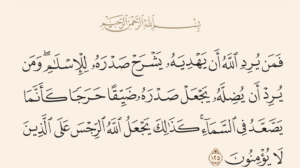 بِسْمِ ٱللَّهِ ٱلرَّحْمَٰنِ ٱلرَّحِيمِ
فَمَن يُرِدِ ٱللَّهُ أَن يَهْدِيَهُۥ يَشْرَحْ صَدْرَهُۥ لِلْإِسْلَٰمِۖ وَمَن
يُرِدْ أَن يُضِلَّهُۥ يَجْعَلْ صَدْرَهُۥ ضَيِّقًا حَرَجًا كَأَنَّمَا
يَصَّعَّدُ فِي ٱلسَّمَآءِۚ كَذَٰلِكَ يَجْعَلُ ٱللَّهُ ٱلرِّجْسَ عَلَى ٱلَّذِينَ
لَا يُؤْمِنُونَ ١٢٥